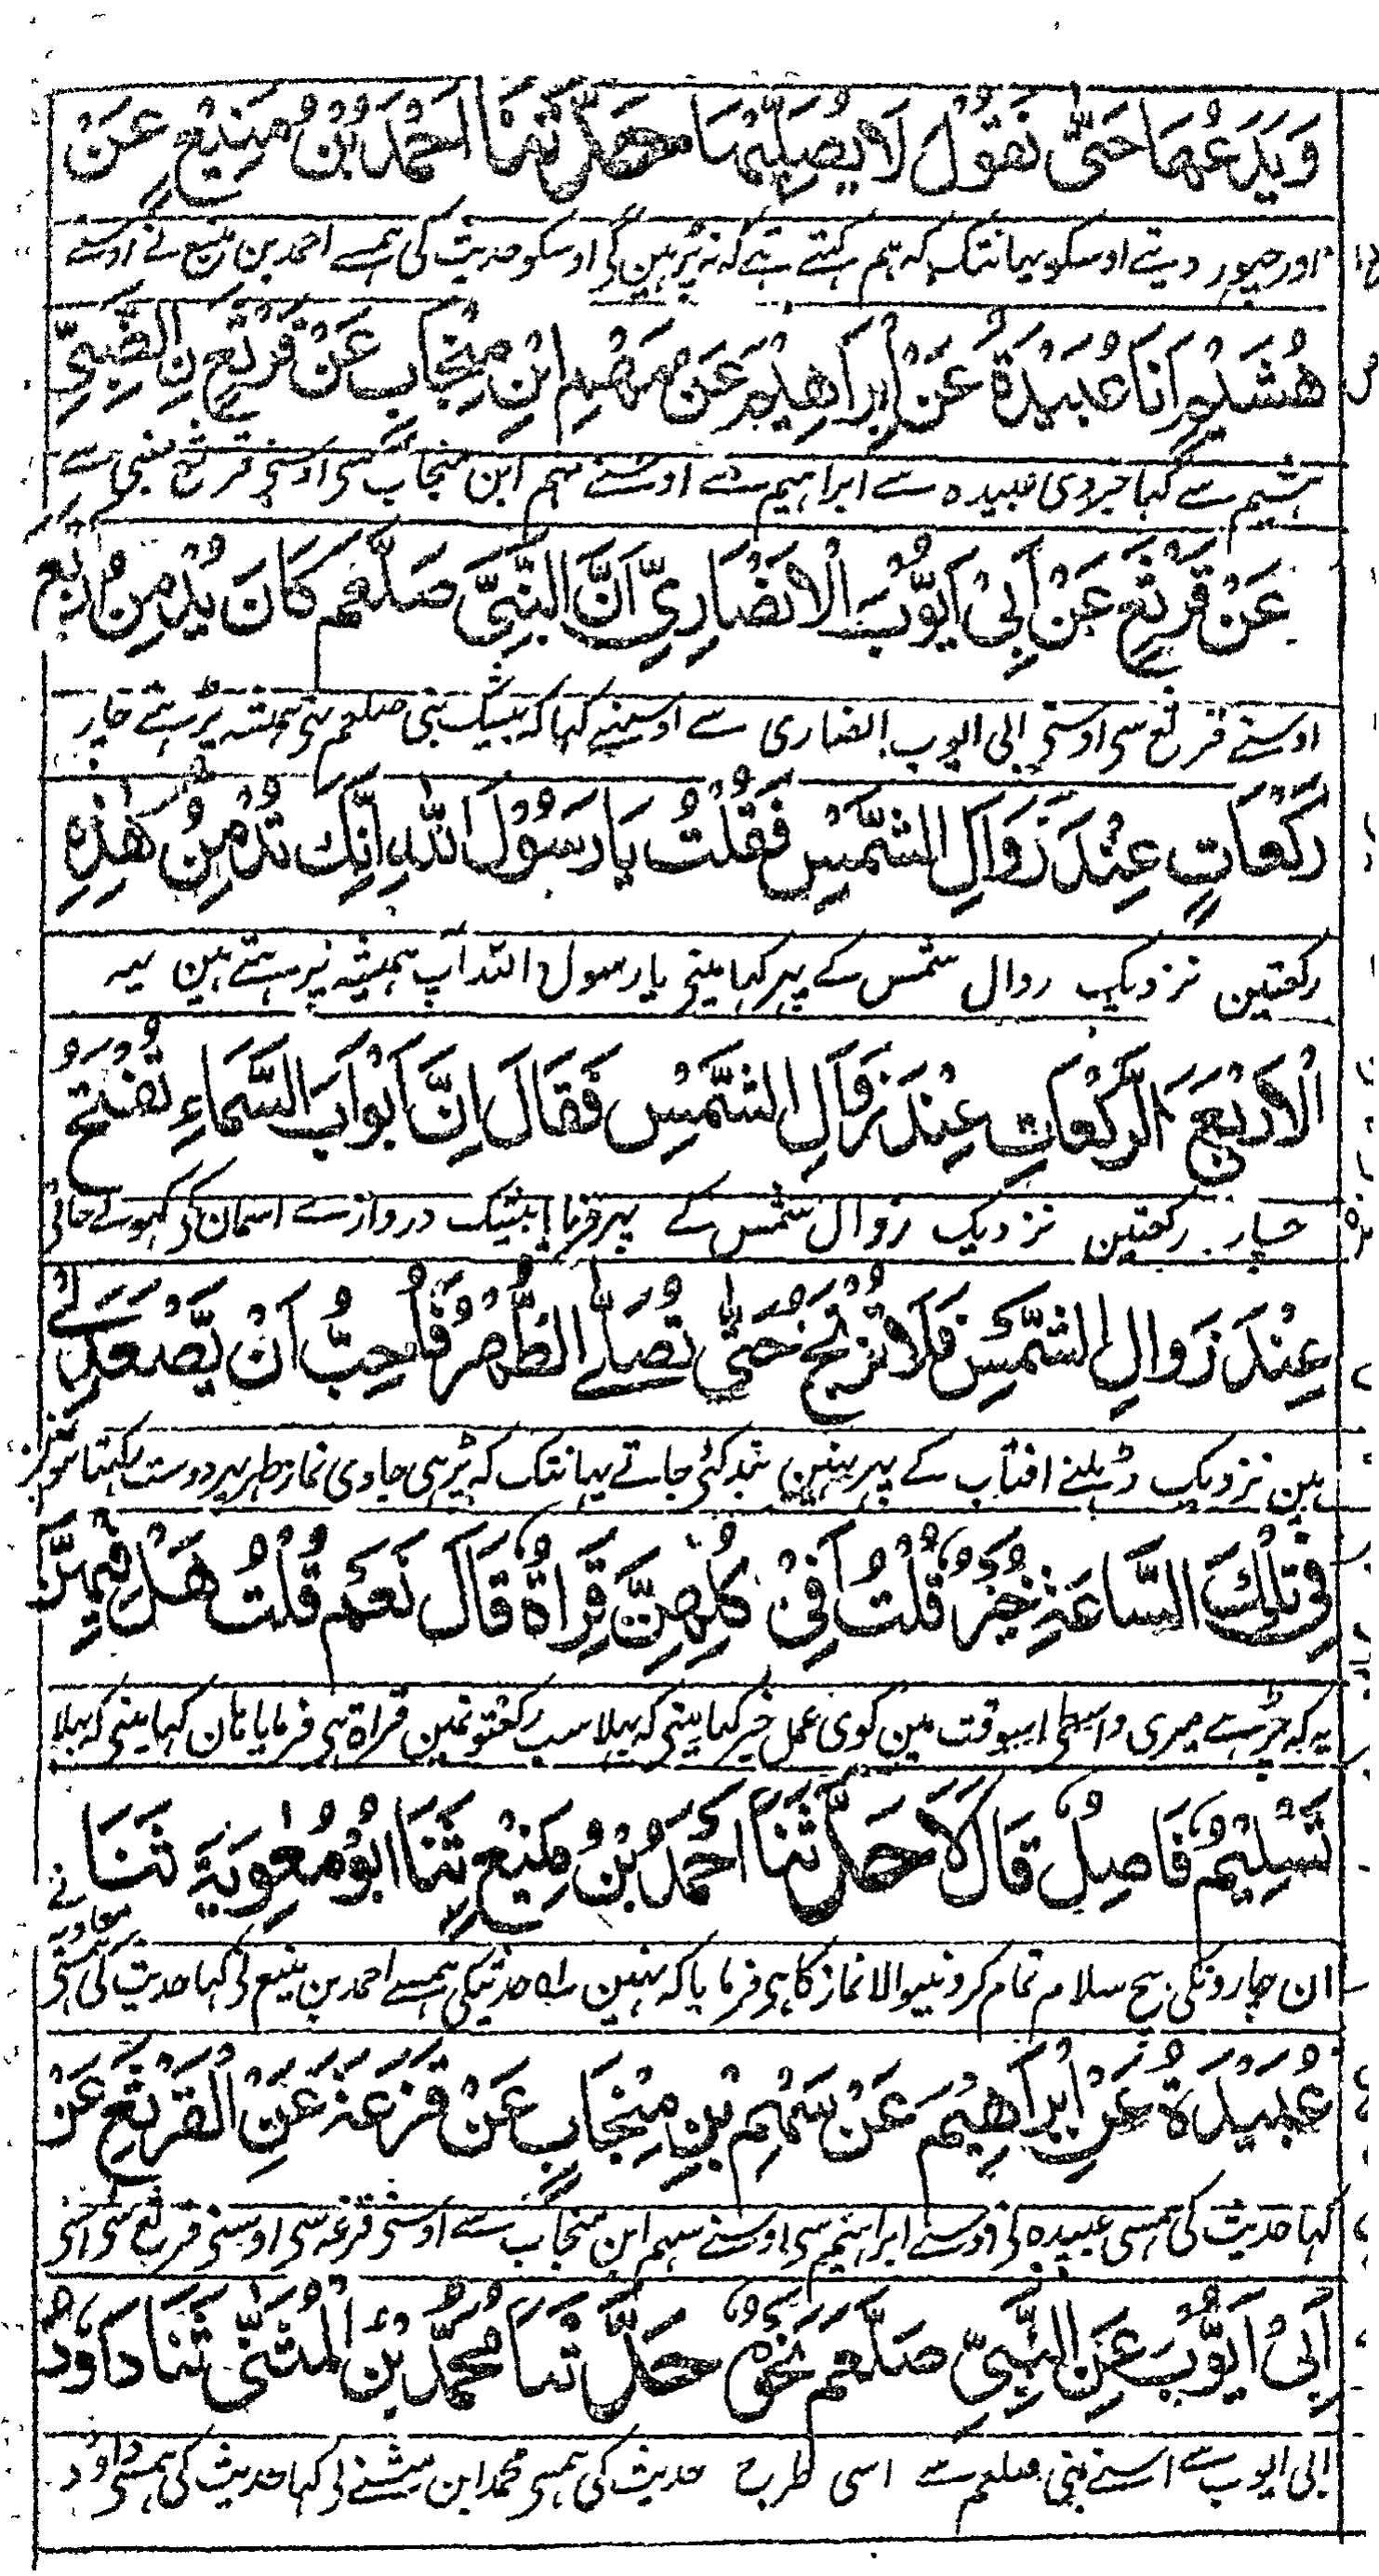 وَيَدَعُهَا حَتّٰى نَقُوْلَ لَا يُصَلِّيْهَا حَدَّثَنَا اَحْمَدُ بْنُ مَنِيْعٍ عَنْ
اور چہوڑ دیتے اوسکو یہانتک کہ ہم کہتے تہے کہ نہ پڑہین گی اوسکو حدیث کی ہمسے احمد بن منیع نے اوسنے
هُشَيْمٍ اَنَا عُبَيْدَةُ عَنْ اِبْرَاهِيْمَ عَنْ سَهْمِ ابْنِ مِنْجَابٍ عَنْ قَرْثَعٍ نِ الضَّبِّيِّ
ہشیم سے کہا خبر دی عبیدہ سے ابراہیم سے اوسنے سہم ابن منجاب سی اوسنی قرثع ضبی سے
عَنْ قَرْثَعٍ عَنْ اَبِيْ اَيُّوْبَ الْاَنْصَارِيِّ اَنَّ النَّبِيَّ صَلَّعَمْ كَانَ يُدْمِنُ اَرْبَعَ
اوسنے قرثع سی اوسنی ابی ایوب انصاری سے اوسنے کہا کہ بیشک نبی صلعم تہی ہمیشہ پڑہتے چار
رَكَعَاتٍ عِنْدَ زَوَالِ الشَّمْسِ فَقُلْتُ يَا رَسُوْلَ اللّٰهِ اِنَّكَ تُدْمِنُ هٰذِهِ
رکعتین نزدیک زوال شمس کے پہر کہا مینی یا رسول اللہ آپ ہمیشہ پڑہتے ہین یہ
الْاَرْبَعَ الرَّكَعَاتِ عِنْدَ زَوَالِ الشَّمْسِ فَقَالَ اِنَّ اَبْوَابَ السَّمَاءِ تُفْتَحُ
چار رکعتین نزدیک زوال شمس کے پہر فرمایا بیشک دروازے اسمان کی کہولے جاتی
عِنْدَ زَوَالِ الشَّمْسِ فَلَا تُرْتَجُ حَتّٰى تُصَلَّى الظُّهْرُ فَاُحِبُّ اَنْ يَّصْعَدَ لِيْ
ہین نزدیک ڈہلنے افتاب کے پہر نہین بند کئی جاتے یہانتک کہ پڑہی جاوی نماز ظہر پہر دوست رکہتا ہون
فِيْ تِلْكَ السَّاعَةِ خَيْرٌ قُلْتُ اَفِيْ كُلِّهِنَّ قِرَاةٌ قَالَ نَعَمْ قُلْتُ هَلْ فِيْهِنَّ
یہ کہ چڑہے میری واسطی اسوقت مین کوی عمل خیر کہا مینی کہ بہلا سب رکعتونمین قراۃ ہی فرمایا ہان کہا مینی کہ بہلا
تَسْلِيْمٌ فَاصِلٌ قَالَ لَا حَدَّثَنَا اَحْمَدُ بْنُ مَنِيْعٍ ثَنَا اَبُوْ مُعٰوِيَةَ ثَنَا
ان چارونکی بیچ سلام تمام کر دینیوالا نماز کا ہی فرمایا کہ نہین حدیث کی ہمسے احمد بن منیع نی کہا حدیث کی ہمسی معاویہ نے
عُبَيْدَةُ عَنْ اِبْرَاهِيْمَ عَنْ سَهْمِ بْنِ مِنْجَابٍ عَنْ قَزْعَةَ عَنِ الْقَرْثَعِ عَنْ
کہا حدیث کی ہمسی عبیدہ نی اوسنے ابراہیم سی اوسنے سہم ابن منجاب سے اوسنی قزعہ سی اوسنی قرثع سی اوسنی
اَبِيْ اَيُّوْبَ عَنِ النَّبِيِّ صَلَّعَمْ نَحْوَهٗ حَدَّثَنَا مُحَمَّدُ بْنُ الْمُثَنّٰى ثَنَا دَاوٗدُ
ابی ایوب سے اسنے نبی صلعم سے اسی طرح حدیث کی ہمسی محمد ابن مثنے نی کہا حدیث کی ہمسی داؤد